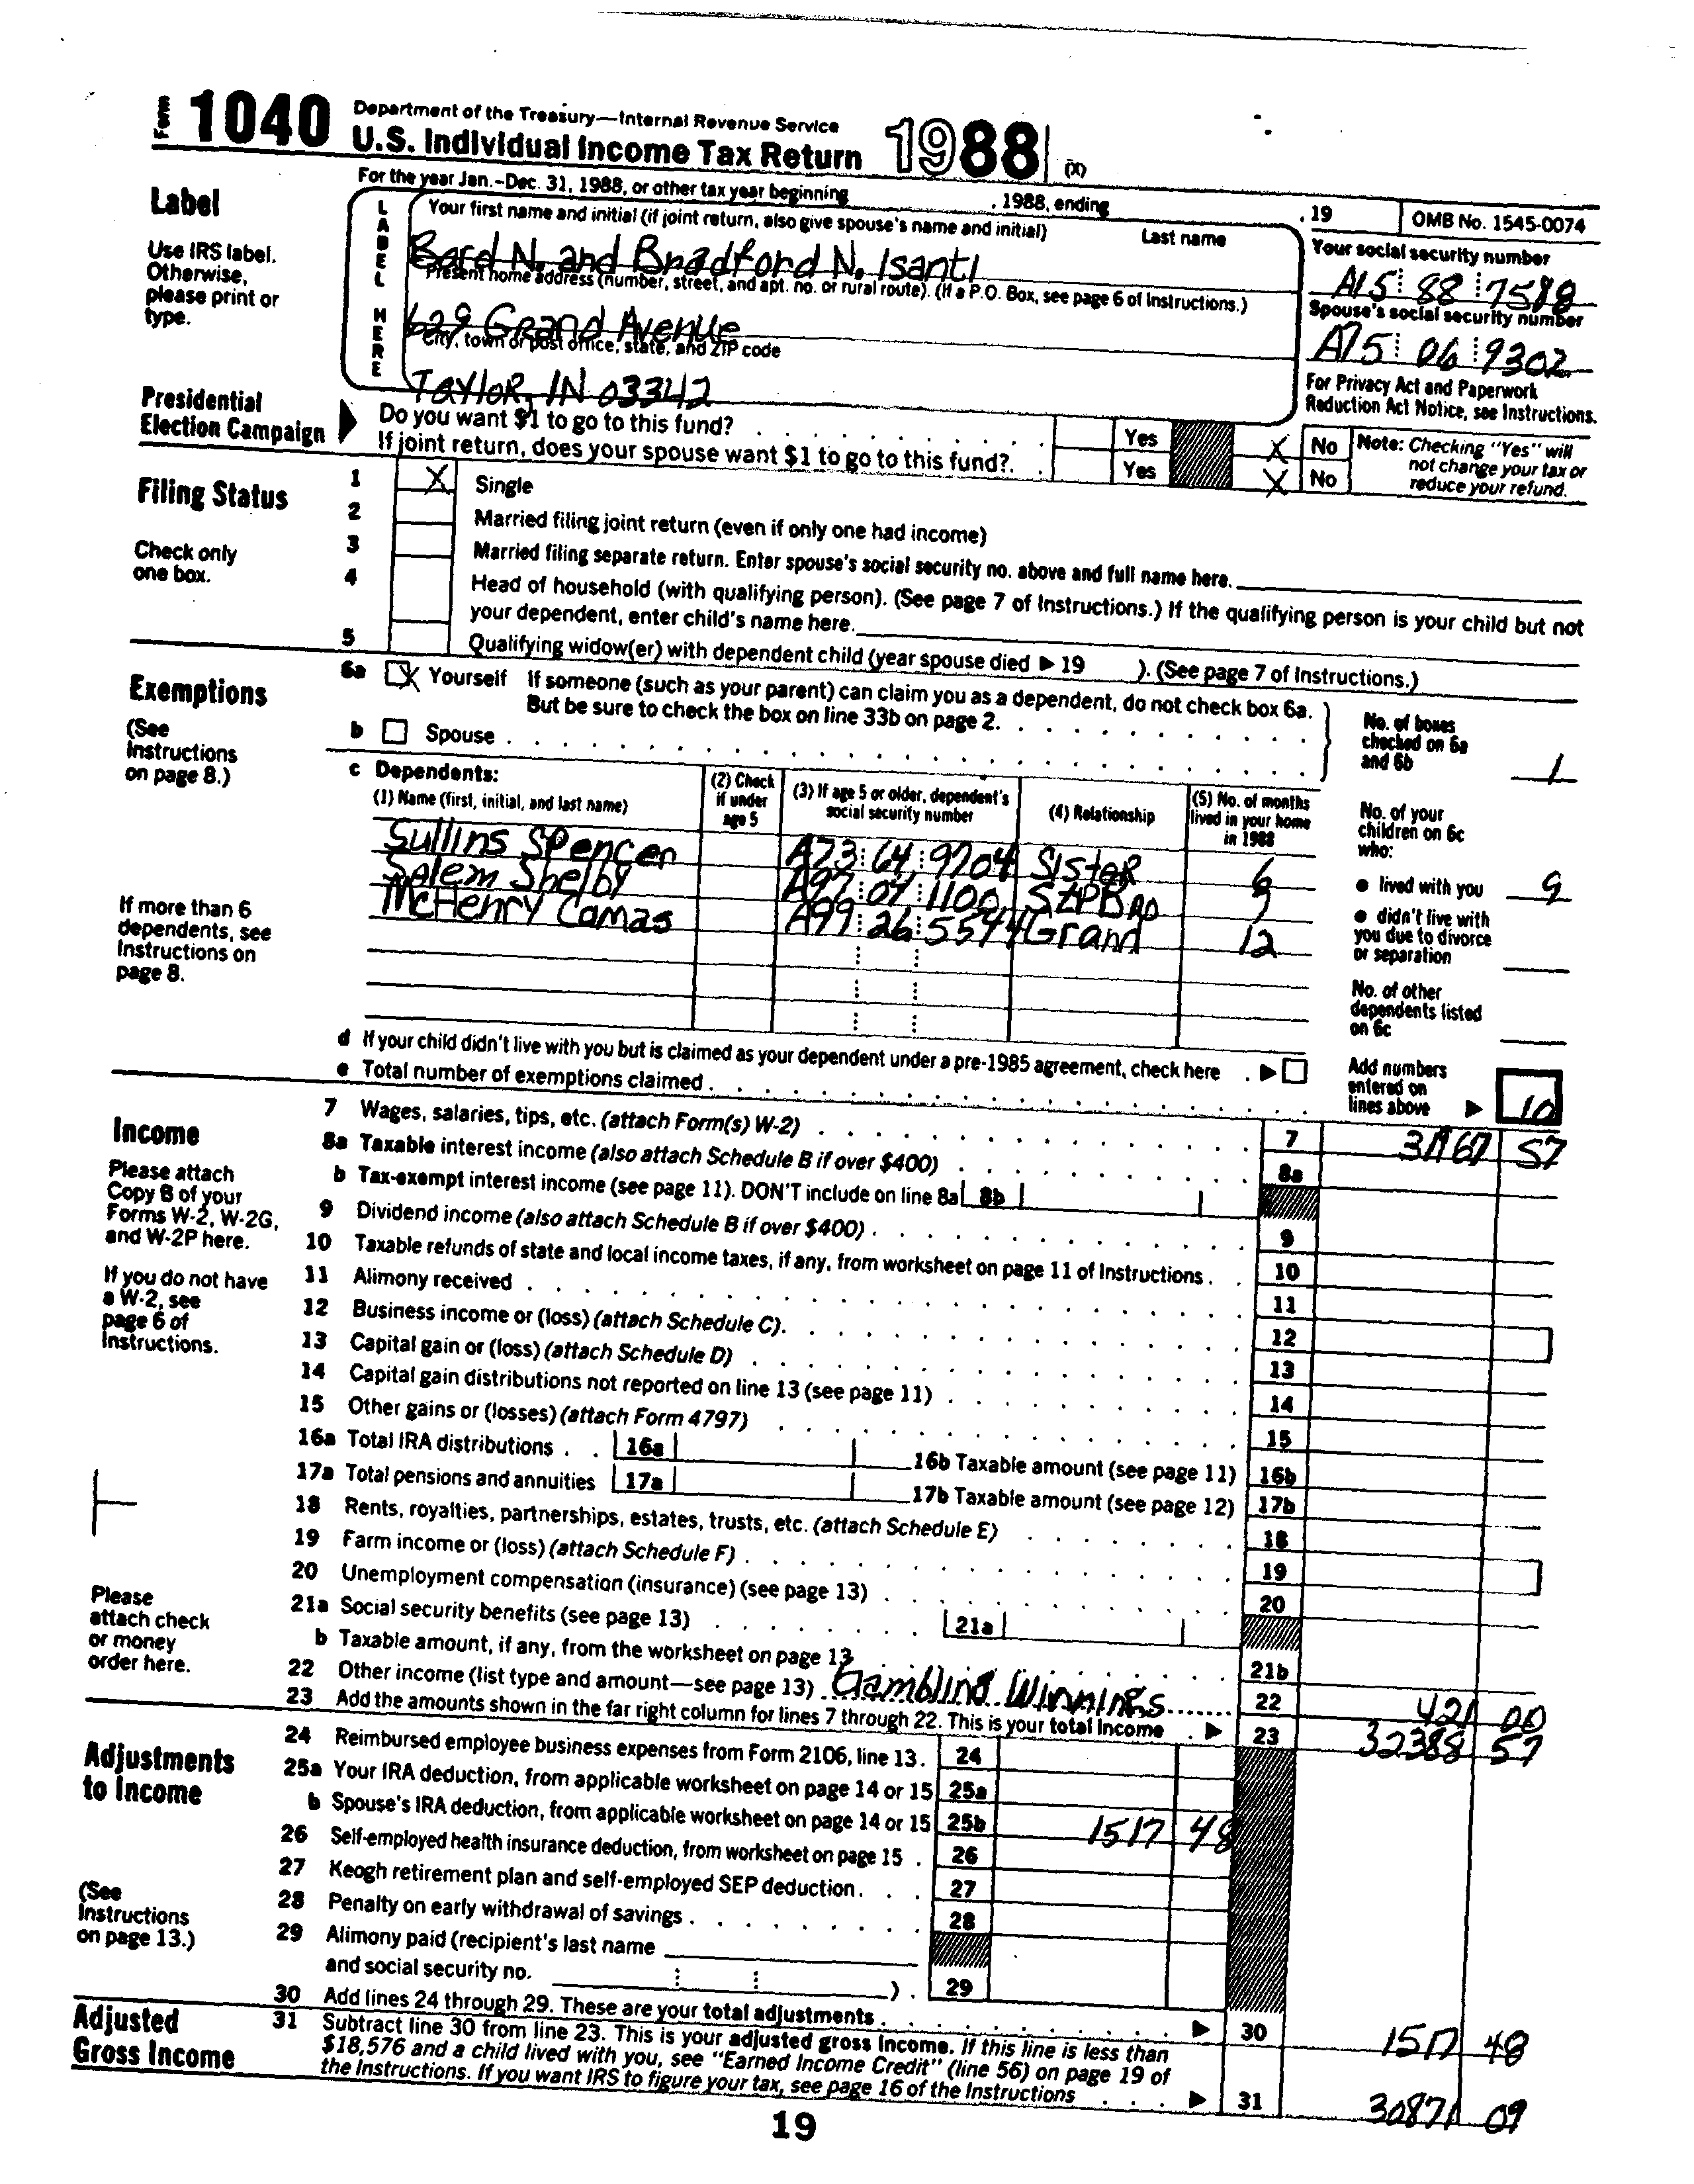 Form 1040 Department of the Treasury—Internal Revenue Service
U.S. Individual Income Tax Return 1988 (X)
For the year Jan.-Dec. 31, 1988, or other tax year beginning , 1988, ending , 19 OMB No. 1545-0074
Label
Use IRS label.
Otherwise,
please print or
type.
LABEL HERE
Your first name and initial (if joint return, also give spouse's name and initial) Last name
Bard N. and Bradford N. Isanti
Present home address (number, street, and apt. no. or rural route). (If a P.O. Box, see page 6 of Instructions.)
629 Grand Avenue
City, town or post office, state, and ZIP code
Taylor, IN 03342
Your social security number
A15 88 7588
Spouse's social security number
A75 06 9302
For Privacy Act and Paperwork
Reduction Act Notice, see Instructions.
Presidential
Election Campaign
Do you want $1 to go to this fund? . . . Yes X No
If joint return, does your spouse want $1 to go to this fund?. . Yes X No
Note: Checking "Yes" will
not change your tax or
reduce your refund.
Filing Status
Check only
one box.
1 X Single
2 Married filing joint return (even if only one had income)
3 Married filing separate return. Enter spouse's social security no. above and full name here.
4 Head of household (with qualifying person). (See page 7 of Instructions.) If the qualifying person is your child but not
your dependent, enter child's name here.
5 Qualifying widow(er) with dependent child (year spouse died ▶ 19 ). (See page 7 of Instructions.)
Exemptions
(See
Instructions
on page 8.)
6a X Yourself If someone (such as your parent) can claim you as a dependent, do not check box 6a.
But be sure to check the box on line 33b on page 2.
b Spouse
No. of boxes
checked on 6a
and 6b 1
c Dependents:
(1) Name (first, initial, and last name)
(2) Check
if under
age 5
(3) If age 5 or older, dependent's
social security number
(4) Relationship
(5) No. of months
lived in your home
in 1988
Sullins Spencer A23 64 9704 Sister 6
Salem Shelby A97 07 1100 StPBro
McHenry Camas A99 26 5544 Grand 12
If more than 6
dependents, see
Instructions on
page 8.
No. of your
children on 6c
who:
● lived with you 9
● didn't live with
you due to divorce
or separation
No. of other
dependents listed
on 6c
d If your child didn't live with you but is claimed as your dependent under a pre-1985 agreement, check here . ▶
e Total number of exemptions claimed
Add numbers
entered on
lines above ▶ 10
Income
Please attach
Copy B of your
Forms W-2, W-2G,
and W-2P here.
If you do not have
a W-2, see
page 6 of
Instructions.
Please
attach check
or money
order here.
7 Wages, salaries, tips, etc. (attach Form(s) W-2) 7 31967 57
8a Taxable interest income (also attach Schedule B if over $400) 8a
b Tax-exempt interest income (see page 11). DON'T include on line 8a 8b
9 Dividend income (also attach Schedule B if over $400) 9
10 Taxable refunds of state and local income taxes, if any, from worksheet on page 11 of Instructions 10
11 Alimony received 11
12 Business income or (loss) (attach Schedule C). 12
13 Capital gain or (loss) (attach Schedule D) 13
14 Capital gain distributions not reported on line 13 (see page 11) 14
15 Other gains or (losses) (attach Form 4797) 15
16a Total IRA distributions 16a 16b Taxable amount (see page 11) 16b
17a Total pensions and annuities 17a 17b Taxable amount (see page 12) 17b
18 Rents, royalties, partnerships, estates, trusts, etc. (attach Schedule E) 18
19 Farm income or (loss) (attach Schedule F) 19
20 Unemployment compensation (insurance) (see page 13) 20
21a Social security benefits (see page 13) 21a
b Taxable amount, if any, from the worksheet on page 13 21b
22 Other income (list type and amount—see page 13) Gambling Winnings 22 421 00
23 Add the amounts shown in the far right column for lines 7 through 22. This is your total income ▶ 23 32388 57
Adjustments
to Income
(See
Instructions
on page 13.)
24 Reimbursed employee business expenses from Form 2106, line 13. 24
25a Your IRA deduction, from applicable worksheet on page 14 or 15 25a
b Spouse's IRA deduction, from applicable worksheet on page 14 or 15 25b 1517 48
26 Self-employed health insurance deduction, from worksheet on page 15 . 26
27 Keogh retirement plan and self-employed SEP deduction. 27
28 Penalty on early withdrawal of savings 28
29 Alimony paid (recipient's last name
and social security no. ). 29
30 Add lines 24 through 29. These are your total adjustments ▶ 30 1517 48
Adjusted
Gross Income
31 Subtract line 30 from line 23. This is your adjusted gross income. If this line is less than
$18,576 and a child lived with you, see "Earned Income Credit" (line 56) on page 19 of
the Instructions. If you want IRS to figure your tax, see page 16 of the Instructions ▶ 31 30871 09
19